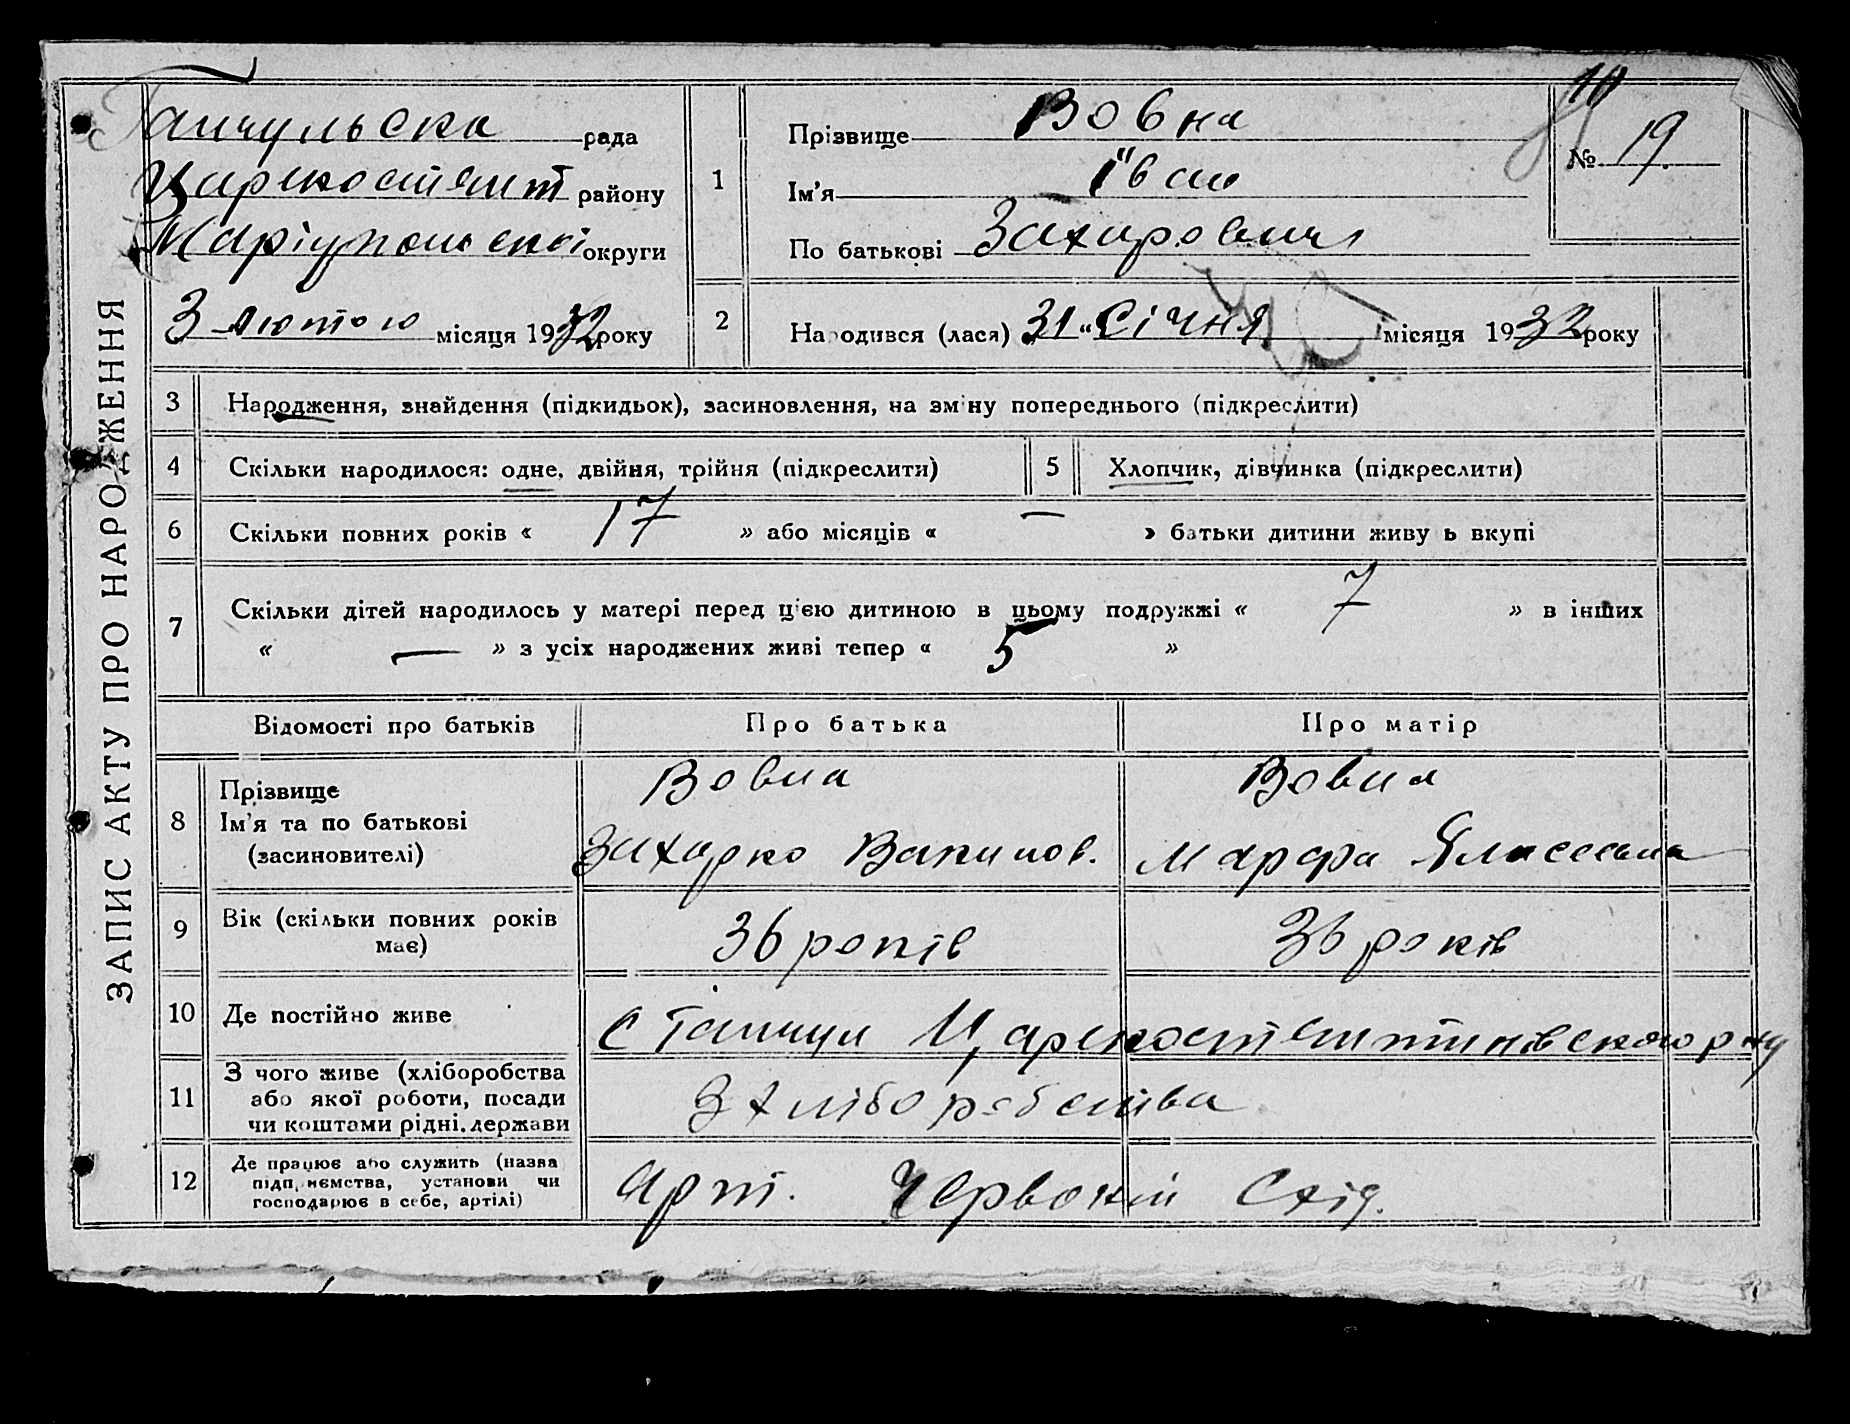 ЗАПИС АКТУ ПРО НАРОДЖЕННЯ
Гайчульска рада
Царекостянт району
Маріупольської округи
3 лютого місяця 1932 року
1
Прізвище Вовна
Ім'я Іван
По батькові Захарович
№ 19.
2
Народився (лася) „31“ Січня місяця 1932 року
3 Народження, знайдення (підкидьок), засиновлення, на зміну попереднього (підкреслити)
4 Скільки народилося: одне, двійня, трійня (підкреслити) 5 Хлопчик, дівчинка (підкреслити)
6 Скільки повних років « 17 » або місяців « — » батьки дитини живуть вкупі
7 Скільки дітей народилось у матері перед цією дитиною в цьому подружжі « 7 » в інших
« — » з усіх народжених живі тепер « 5 »
Відомості про батьків Про батька Про матір
8 Прізвище
Ім'я та по батькові
(засиновителі)
Вовна
Захарко
Вовна
Марфа
9 Вік (скільки повних років
має)
36 років 36 років
10 Де постійно живе
с Гайчул Царекостянтинівского р ну
11 З чого живе (хліборобства
або якої роботи, посади
чи коштами рідні. держави
З хліборобства
12 Де працює або служить (назва
підприємства, установи чи
господарює в себе, артілі)
Арт. Червоний Схід.